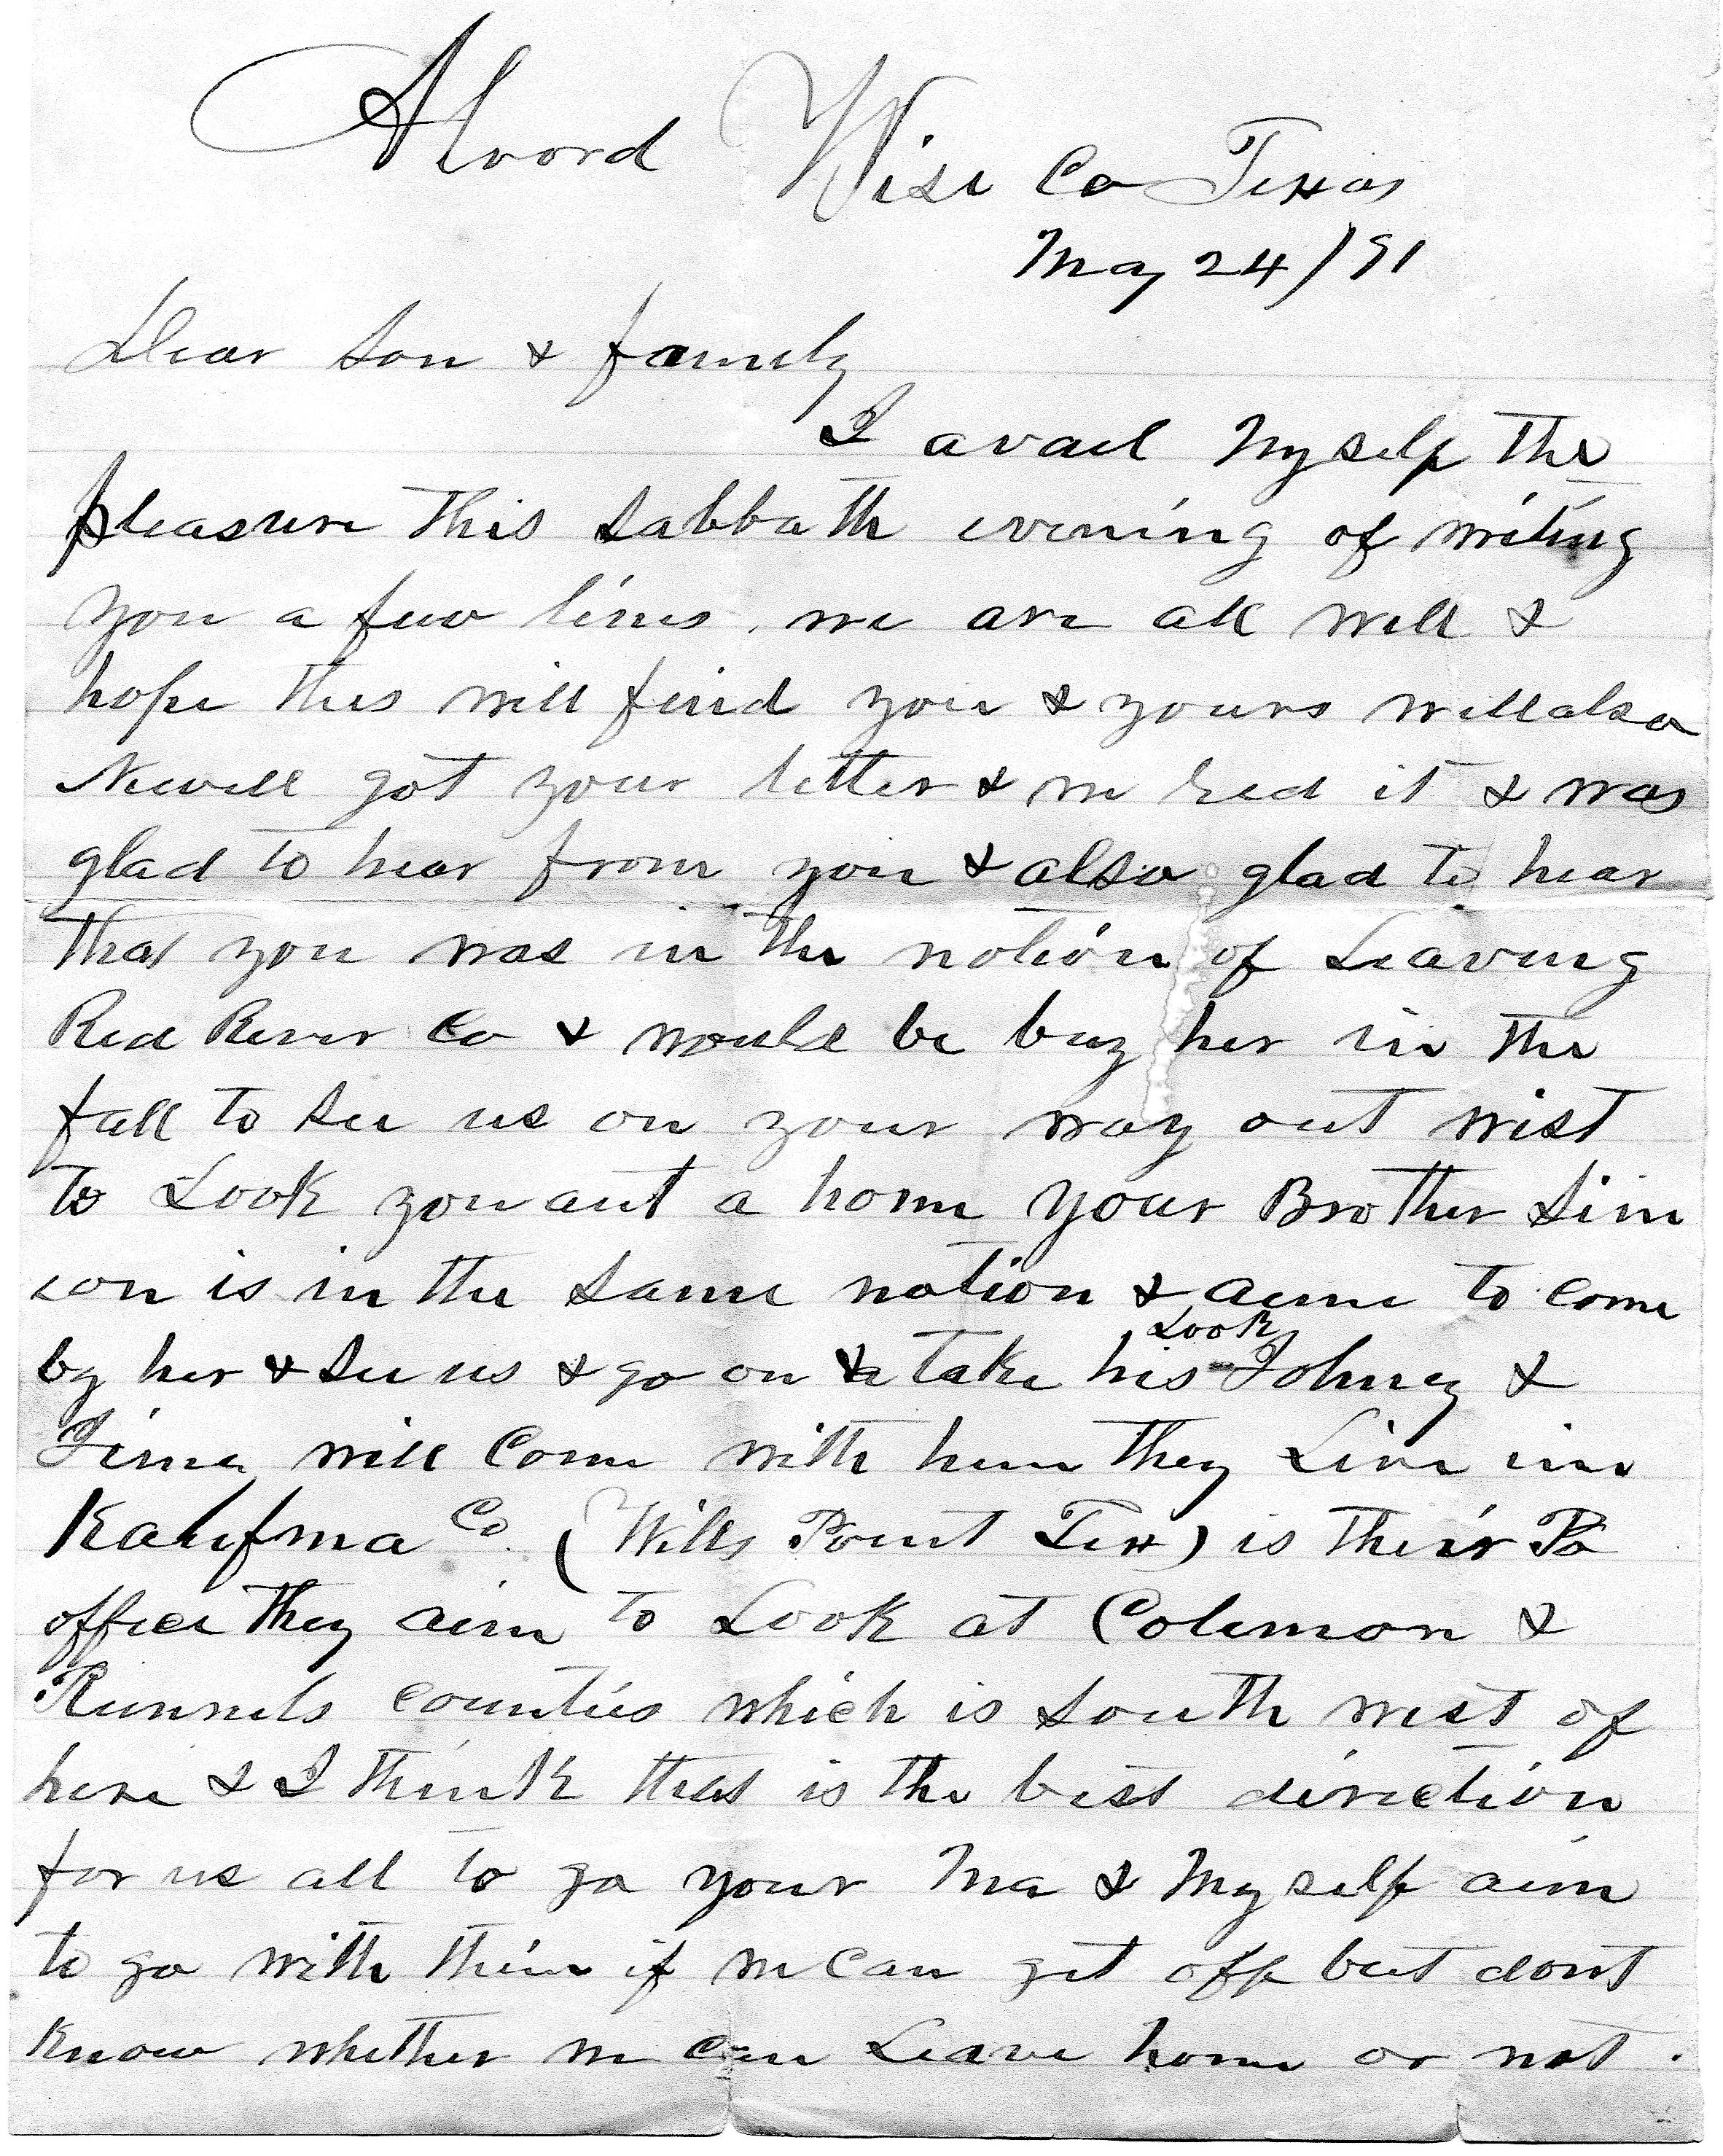 Alvord Wise Co Texas
May 24/91
Dear Son & family
I avail Myself the
pleasure this Sabbath evening of writing
you a few lines. we are all well &
hope this will find you & yours well also
Newell got your letter & we red it & was
glad to hear from you & also glad to hear
that you was in the notion of Leaving
Red River Co & would be buy her in the
fall to See us on your way out west
to Look you out a home your Brother Sim
eon is in the Same notion & aime to come
by her & See us & go on & take his Look Johney &
will Come with him they Live in
Kaufma Co. (Wills Point Tex) is their Po
office they aim to Look at Coleman &
Runnels counties which is South west of
here & I think that is the best direction
for us all to go your Ma & Myself aim
to go with them if we can get off but dont
Know whether we can Leave home or not.